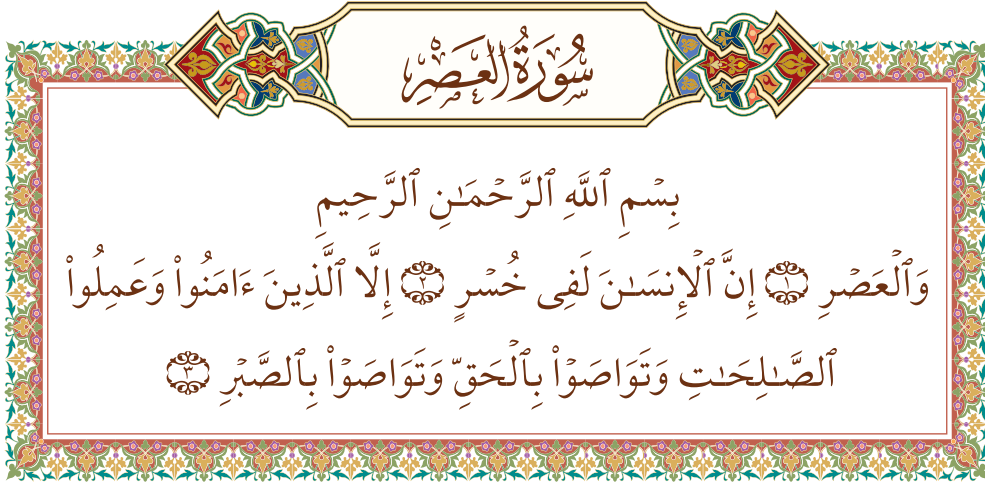 سُورَةُ العَصْرِ
بِسْمِ ٱللَّهِ ٱلرَّحْمَـٰنِ ٱلرَّحِيمِ
وَٱلْعَصْرِ ١ إِنَّ ٱلْإِنسَـٰنَ لَفِى خُسْرٍ ٢ إِلَّا ٱلَّذِينَ ءَامَنُوا۟ وَعَمِلُوا۟
ٱلصَّـٰلِحَـٰتِ وَتَوَاصَوْا۟ بِٱلْحَقِّ وَتَوَاصَوْا۟ بِٱلصَّبْرِ ٣